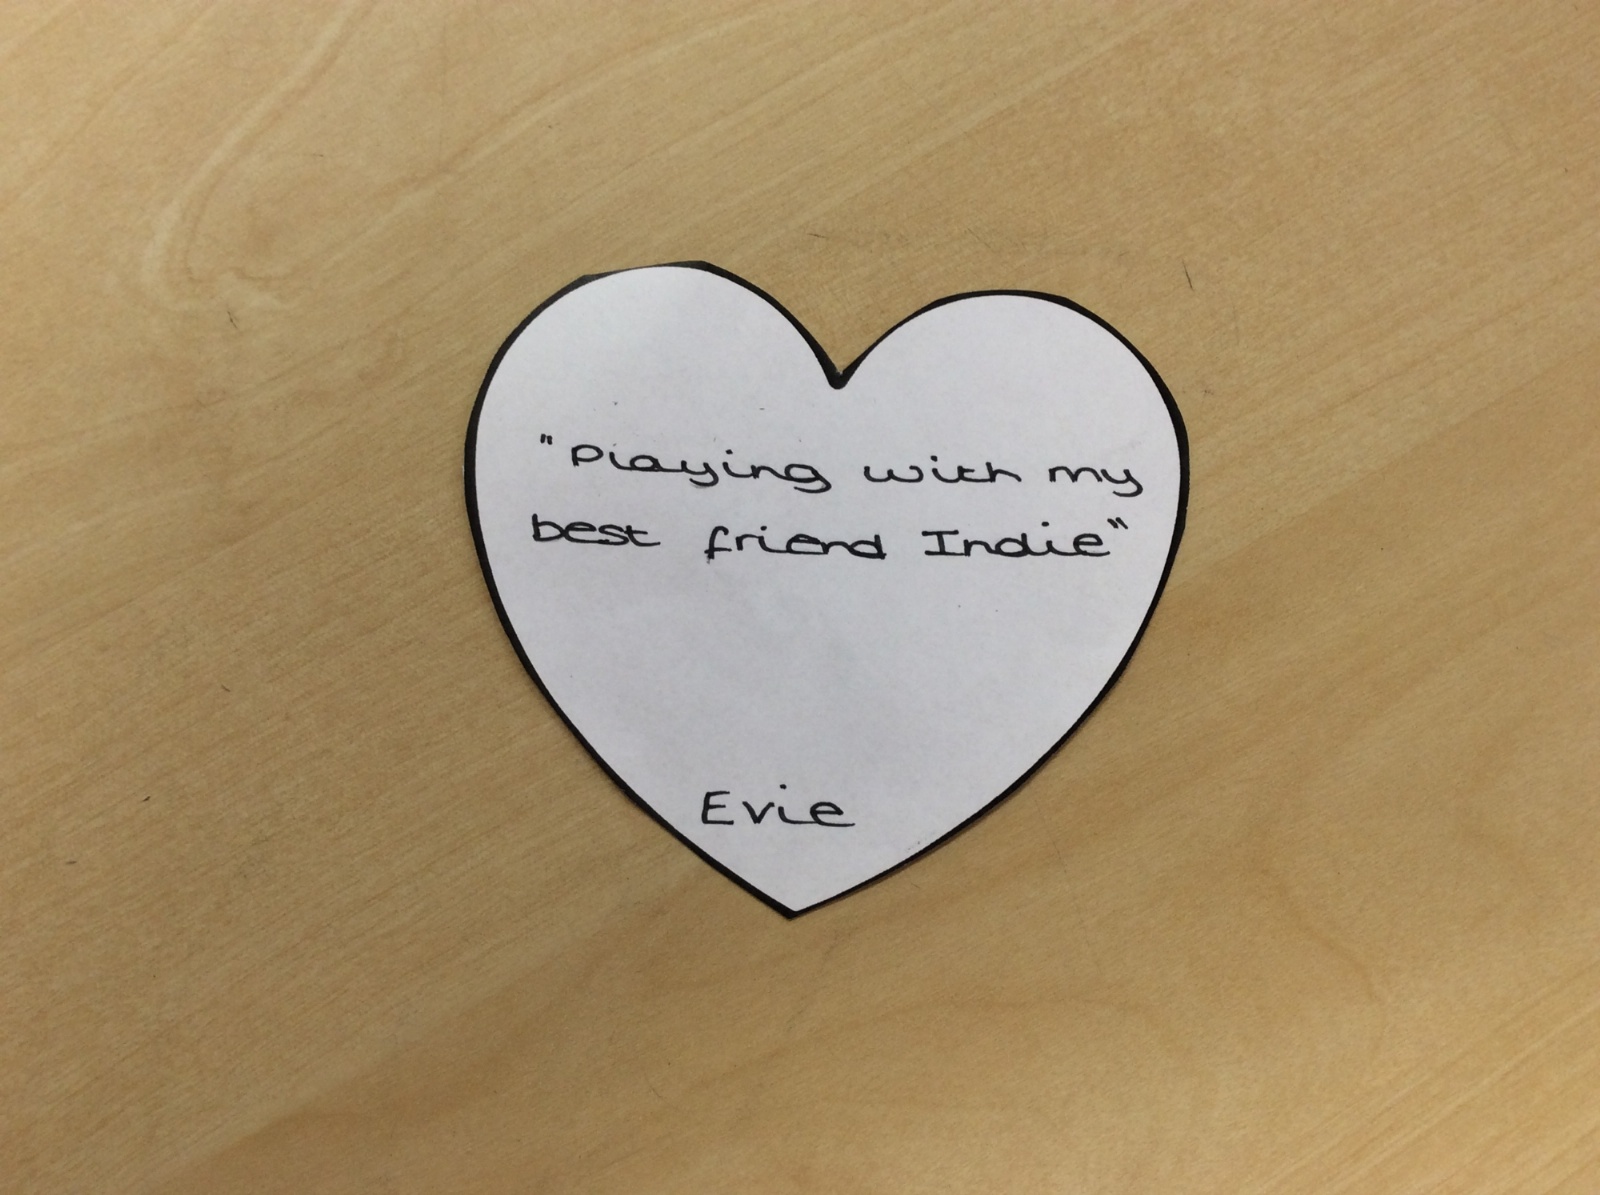 "Playing with my
best friend Indie"
Evie